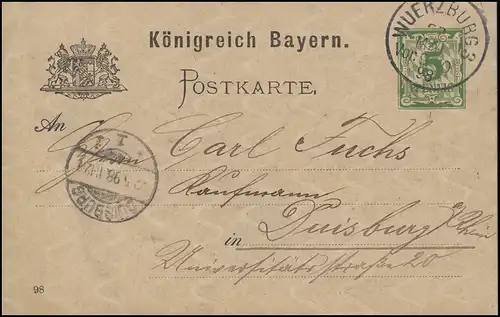 Königreich Bayern.
WUERZBURG 2
98
5
POSTKARTE.
An
Herrn Carl Fuchs
Kaufmann
in Duisburg a/Rhein
Universitätsstraße 20
DUISBURG
98